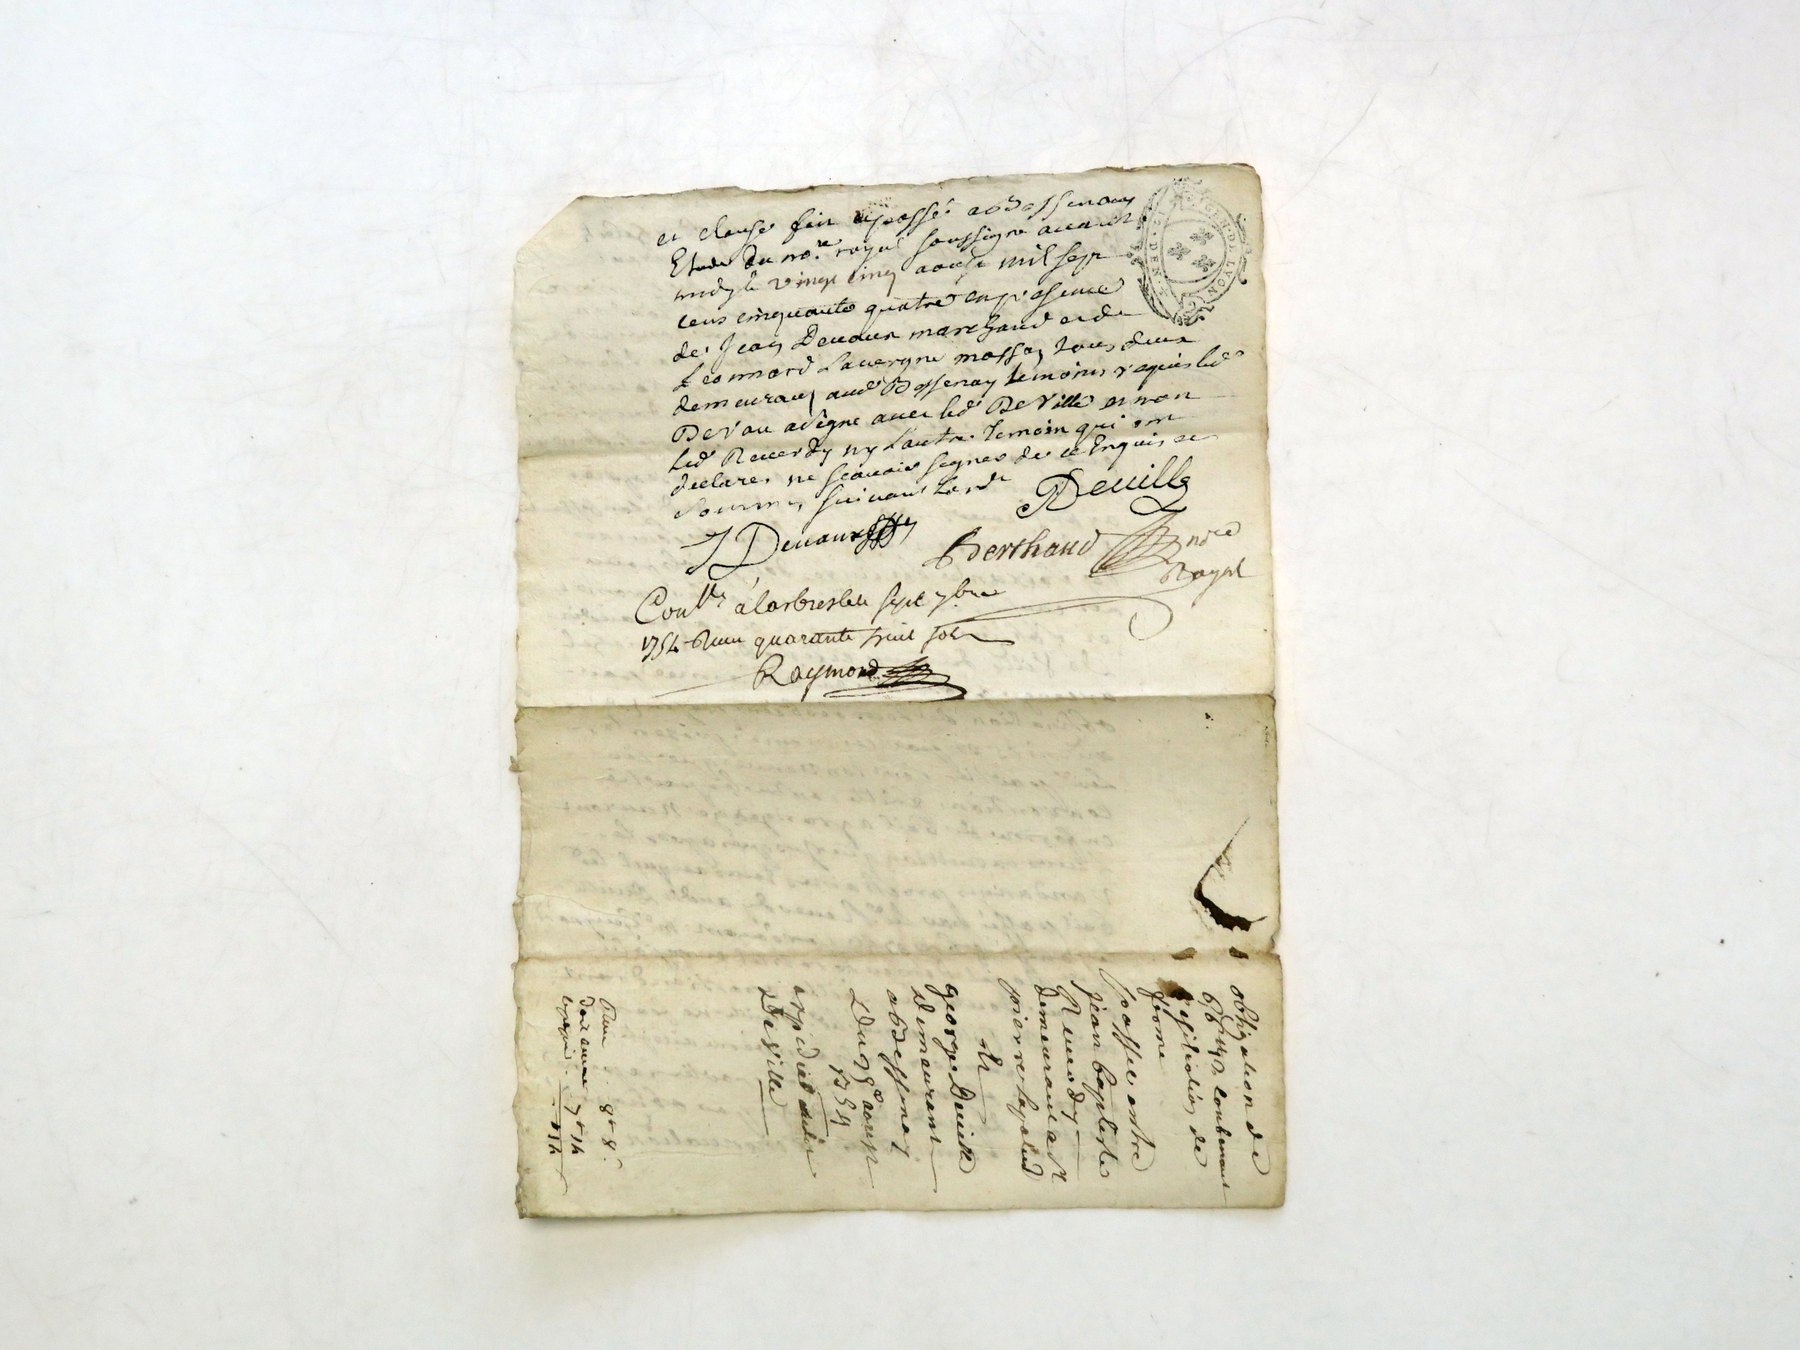 et clause fait et passé a Bessenay
Etude du no.re royal soussigné avant
midy le vingt cinq aoust mil sept
cens cinquante quatre en presence
de Jean Devaux marchand et de
Leonnard Lauergne masson tous deux
demeurans aud Bessenay temoins requis led
Devau a signe avec led DeVille et non
led Reuerdy ny l'autre temoin qui ont
declarer ne scauoir signer de ce Enquis et
Sommes suiuant lord
Deville
J Devaux
Berthaud no.re
Royal
Con.lle à larbresle le sept 7bre
1754 Reçu quarante huit sols
Raymond
GEN. DE LYON
obligation de
contenant
resiliation de
ferme
passee entre
jean baptiste
Reuerdy
demeurant a St
pierre la palud
Et
george Deville
demeurant
a Bessenay
Du 25e aoust
1754
expedié audit
DeVille